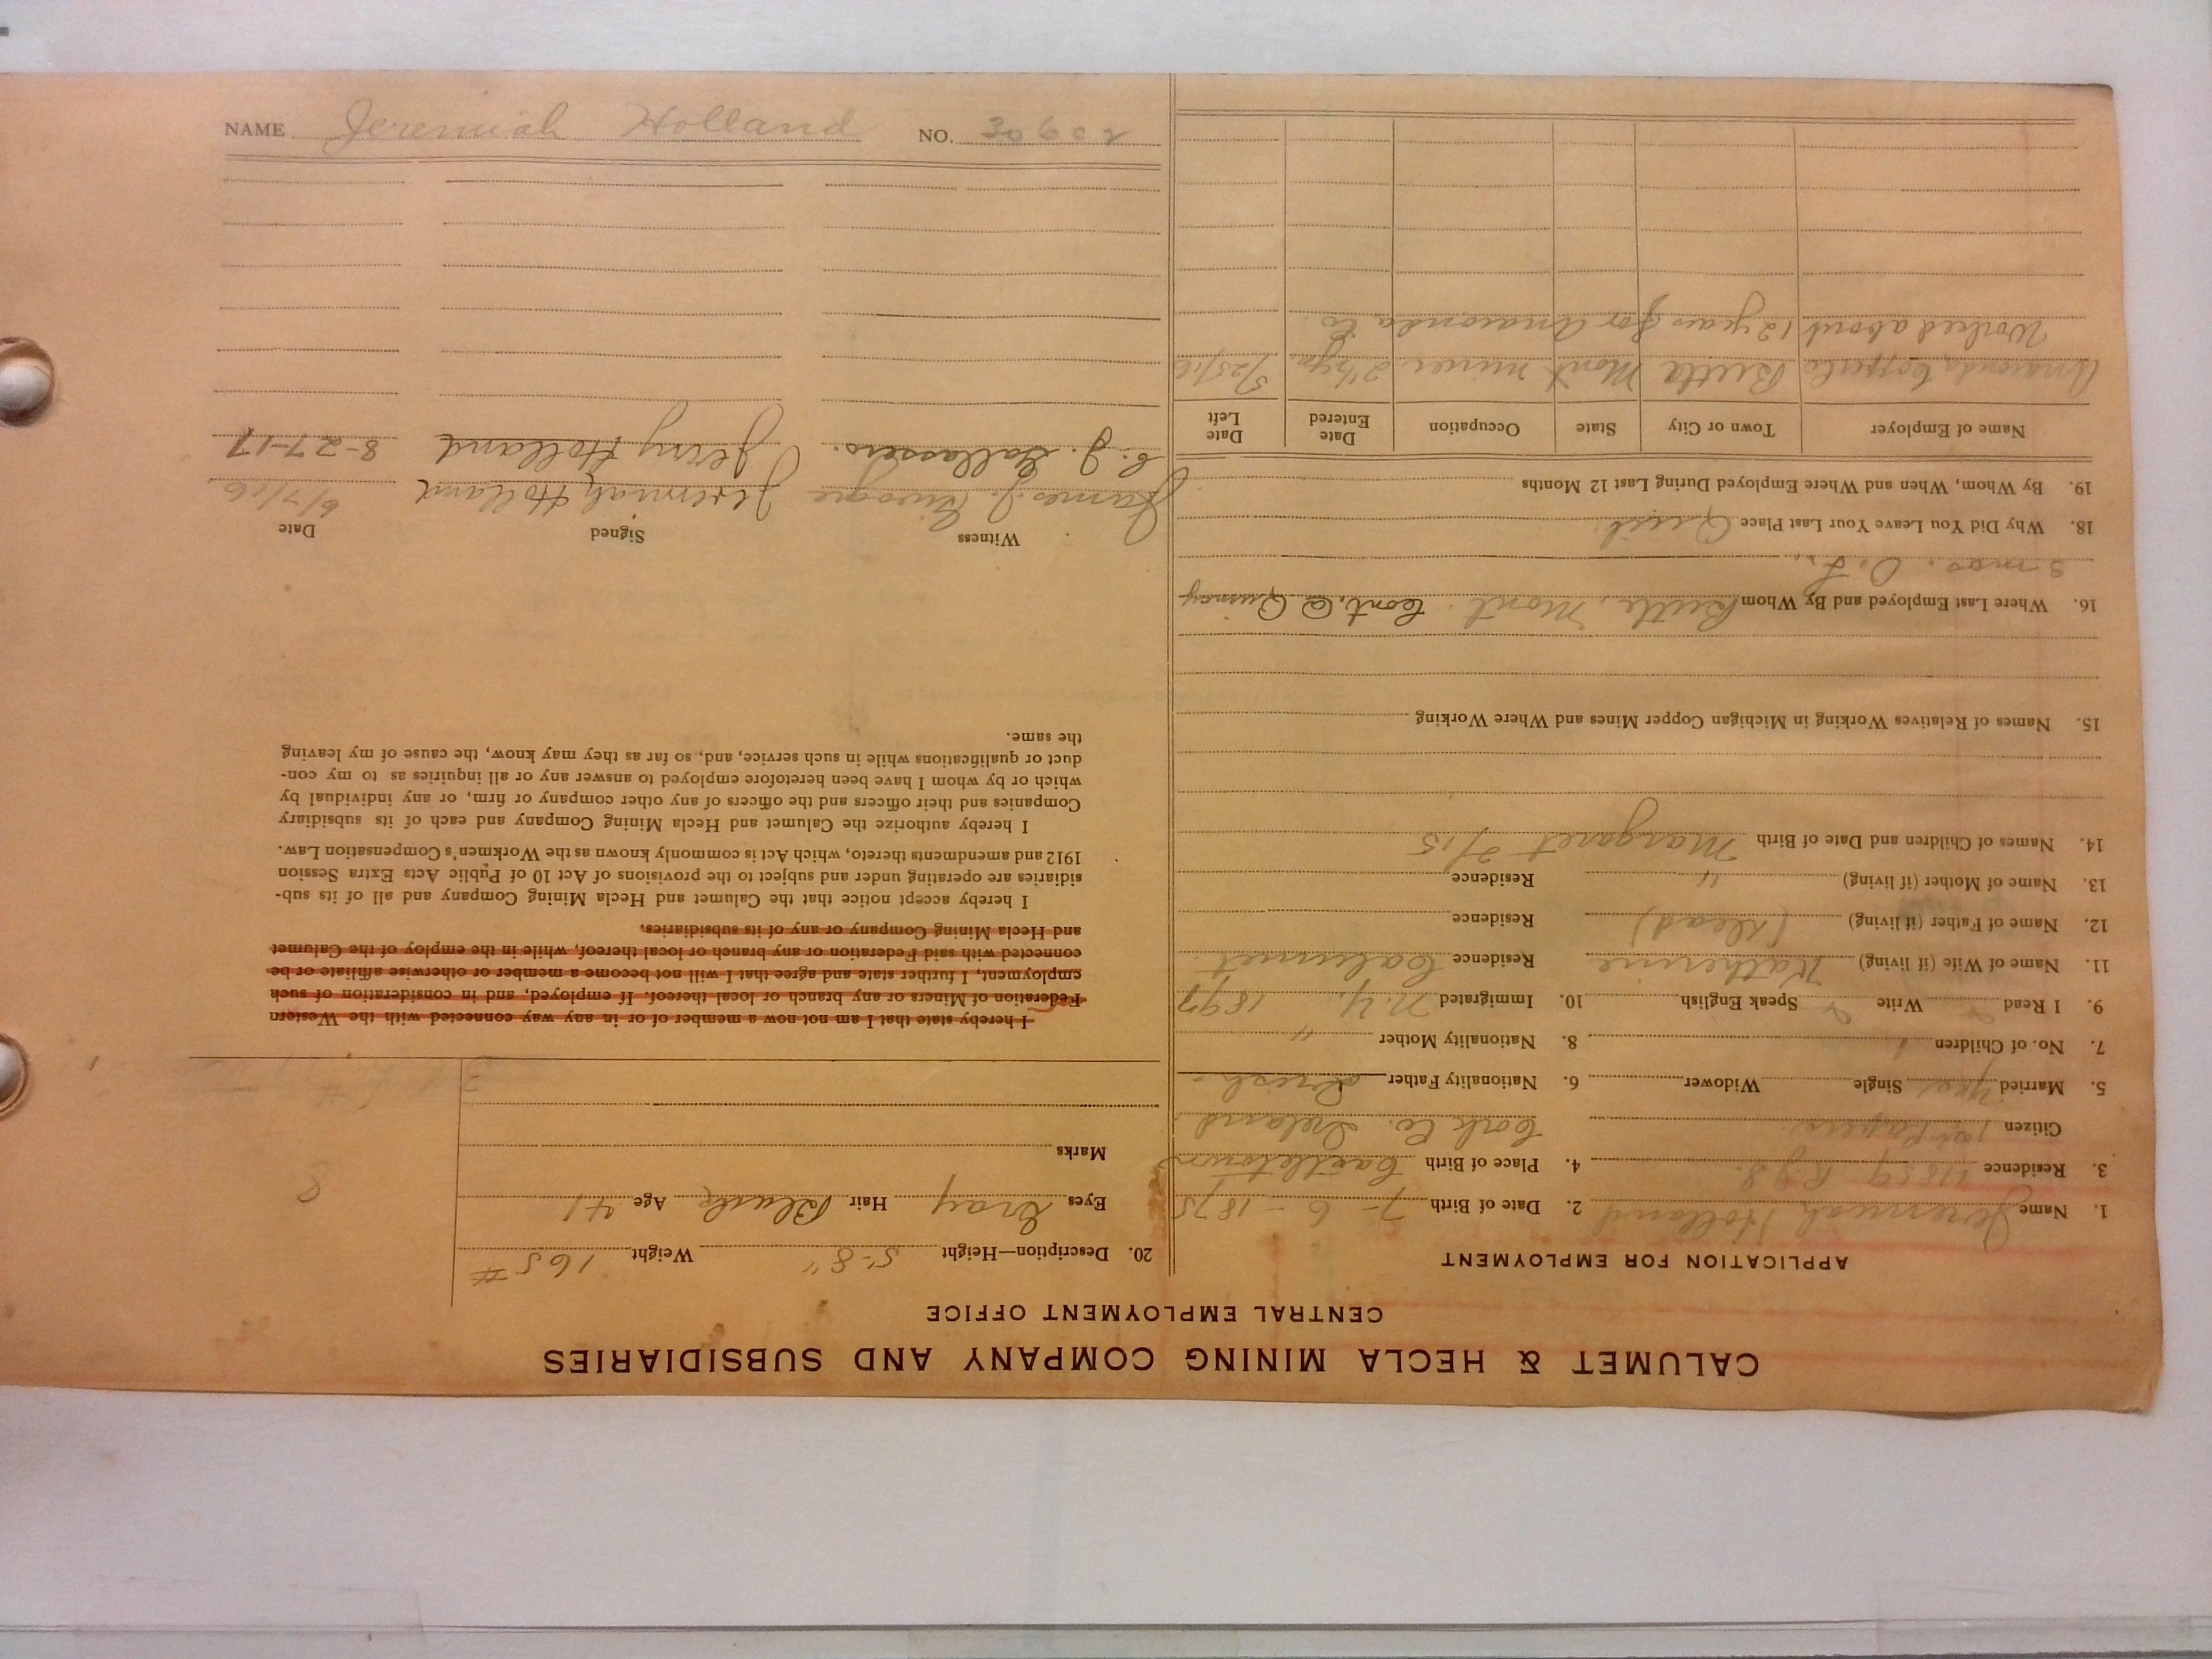 CALUMET & HECLA MINING COMPANY AND SUBSIDIARIES
CENTRAL EMPLOYMENT OFFICE
APPLICATION FOR EMPLOYMENT
1. Name Jeremiah Holland 2. Date of Birth 7-6-1875
3. Residence 4. Place of Birth Castletown
Citizen 1st Papers Cork Co. Ireland
5. Married Yes Single Widower 6. Nationality Father Irish
7. No. of Children 1 8. Nationality Mother "
9. I Read Write Speak English 10. Immigrated N.Y. 1897
11. Name of Wife (if living) Katherine Residence Calumet
12. Name of Father (if living) (dead) Residence
13. Name of Mother (if living) " Residence
14. Names of Children and Date of Birth Margaret 2/15
15. Names of Relatives Working in Michigan Copper Mines and Where Working
16. Where Last Employed and By Whom Butte, Mont. Cont. @ Quincy
3 mos.
18. Why Did You Leave Your Last Place Quit
19. By Whom, When and Where Employed During Last 12 Months
Name of Employer Town or City State Occupation Date Entered Date Left
Anaconda Copper Co Butte Mont miner 2 1/2 yrs 5/25/16
Worked about 12 years for Anaconda Co.
20. Description—Height 5'-8" Weight 165 #
Eyes Gray Hair Black Age 41
Marks
I hereby state that I am not now a member of or in any way connected with the Western
Federation of Miners or any branch or local thereof. If employed, and in consideration of such
employment, I further state and agree that I will not become a member or otherwise affiliate or be
connected with said Federation or any branch or local thereof, while in the employ of the Calumet
and Hecla Mining Company or any of its subsidiaries.
I hereby accept notice that the Calumet and Hecla Mining Company and all of its sub-
sidiaries are operating under and subject to the provisions of Act 10 of Public Acts Extra Session
1912 and amendments thereto, which Act is commonly known as the Workmen's Compensation Law.
I hereby authorize the Calumet and Hecla Mining Company and each of its subsidiary
Companies and their officers and the officers of any other company or firm, or any individual by
which or by whom I have been heretofore employed to answer any or all inquiries as to my con-
duct or qualifications while in such service, and, so far as they may know, the cause of my leaving
the same.
Witness Signed Date
James J. Jeremiah Holland 6/7/16
C. J. Jerry Holland 8-27-17
NAME Jeremiah Holland NO. 30602